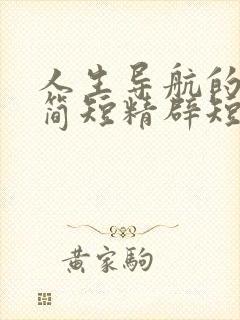 人生导航的
简短精辟短
黄家驹